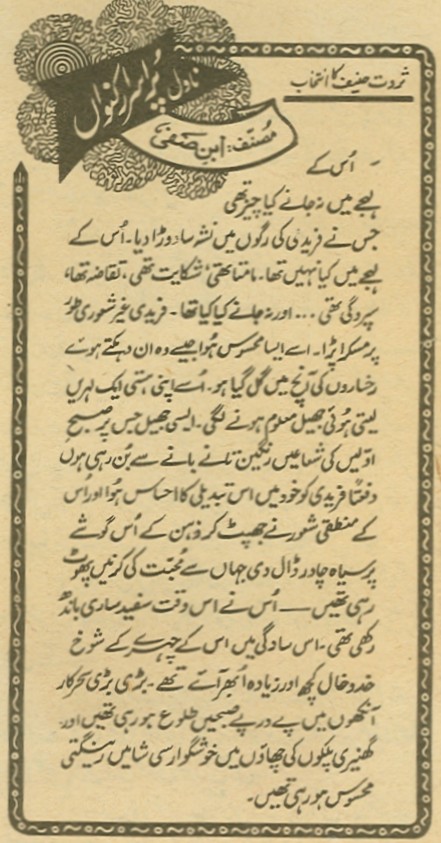 ثروت حنیف کا انتخاب
ناول پُراسرار کنواں
مصنف: ابنِ صفی
۔ اُس کے
لہجے میں نہ جانے کیا چیز تھی
جس نے فریدی کی رگوں میں نشہ سا دوڑا دیا۔ اُس کے
لہجے میں کیا نہیں تھا۔ مامتا تھی، شکایت تھی، تقاضہ تھا،
سپردگی تھی ... اور نہ جانے کیا کیا تھا۔ فریدی غیر شعوری طور
پر مسکرا پڑا۔ اسے ایسا محسوس ہوا جیسے وہ ان دہکتے ہوئے
رخساروں کی آنچ میں گھل گیا ہو۔ اُسے اپنی ہستی ایک لہریں
لیتی ہوئی جھیل معلوم ہونے لگی۔ ایسی جھیل جس پر صبح
اوّلیں کی شعاعیں رنگین تانے بانے سے بُن رہی ہوں
دفعتاً فریدی کو خود میں اس تبدیلی کا احساس ہوا اور اُس
کے منطقی شعور نے جھپٹ کر ذہن کے اُس گوشے
پر سیاہ چادر ڈال دی جہاں سے محبّت کی کرنیں پھوٹ
رہی تھیں — اُس نے اس وقت سفید ساری باندھ
رکھی تھی۔ اس سادگی میں اس کے چہرے کے شوخ
خدوخال کچھ اور زیادہ اُبھر آئے تھے۔ بڑی بڑی سحرکار
آنکھوں میں پے در پے صبحیں طلوع ہو رہی تھیں اور
گھنیری پلکوں کی چھاؤں میں خوشگوار سی شامیں رینگتی
محسوس ہو رہی تھیں۔